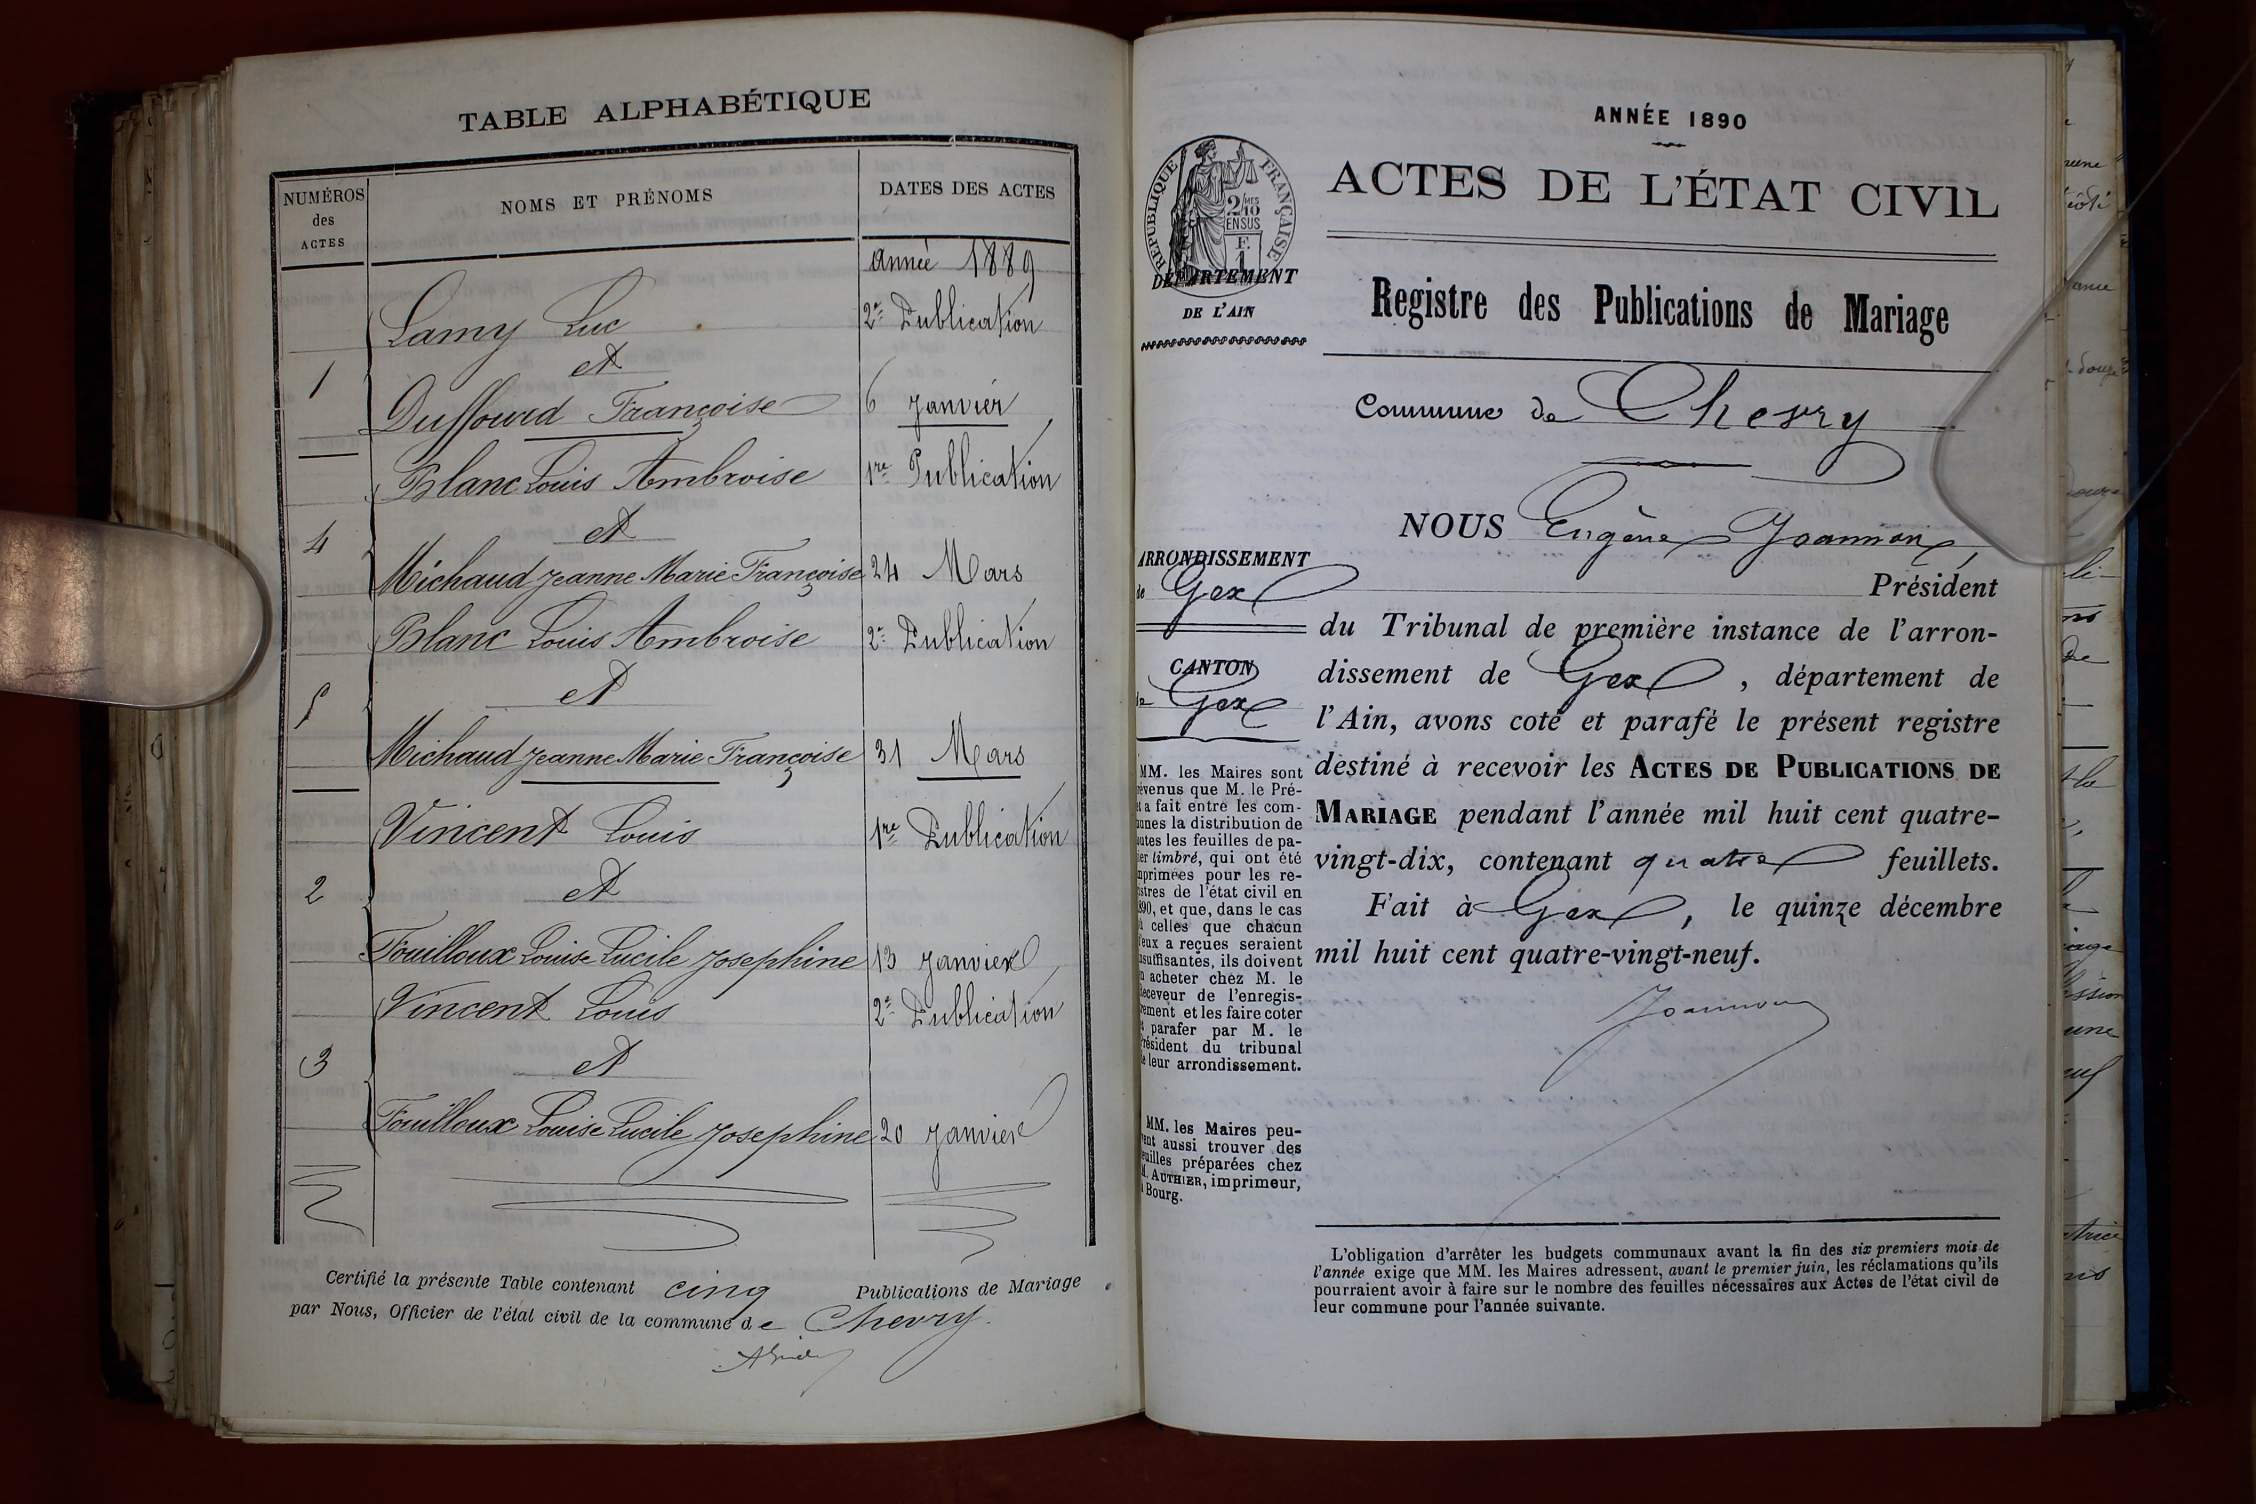 TABLE ALPHABÉTIQUE
NUMÉROS
des
ACTES
NOMS ET PRÉNOMS
DATES DES ACTES
année 1889
Lamy Luc
2e Publication
1
et
Duffourd Françoise
6 janvier
Blanc Louis Ambroise
1re Publication
4
et
Michaud Jeanne Marie Françoise
24 Mars
Blanc Louis Ambroise
2e Publication
5
et
Michaud Jeanne Marie Françoise
31 Mars
Vincent Louis
1re Publication
2
et
Fouilloux Louise Lucile Josephine
13 janvier
Vincent Louis
2e Publication
3
et
Fouilloux Louise Lucile Josephine
20 janvier
Certifié la présente Table contenant cinq Publications de Mariage
par Nous, Officier de l'état civil de la commune de Chevry.
ANNÉE 1890
ACTES DE L'ÉTAT CIVIL
RÉPUBLIQUE FRANÇAISE
2/10 MES
EN SUS
F.
1
DÉPARTEMENT
DE L'AIN
Registre des Publications de Mariage
Commune de Chevry
NOUS Eugène Joannon,
Président
du Tribunal de première instance de l'arron-
dissement de Gex, département de
l'Ain, avons coté et parafé le présent registre
destiné à recevoir les ACTES DE PUBLICATIONS DE
MARIAGE pendant l'année mil huit cent quatre-
vingt-dix, contenant quatre feuillets.
Fait à Gex, le quinze décembre
mil huit cent quatre-vingt-neuf.
Joannon
ARRONDISSEMENT
de Gex
CANTON
de Gex
MM. les Maires sont
évenus que M. le Pré-
et a fait entre les com-
unes la distribution de
utes les feuilles de pa-
er timbré, qui ont été
mprimées pour les re-
istres de l'état civil en
890, et que, dans le cas
celles que chacun
eux a reçues seraient
nsuffisantes, ils doivent
acheter chez M. le
eceveur de l'enregis-
rement et les faire coter
parafer par M. le
résident du tribunal
e leur arrondissement.
MM. les Maires peu-
ent aussi trouver des
euilles préparées chez
M. AUTHIER, imprimeur,
Bourg.
L'obligation d'arrêter les budgets communaux avant la fin des six premiers mois de
l'année exige que MM. les Maires adressent, avant le premier juin, les réclamations qu'ils
pourraient avoir à faire sur le nombre des feuilles nécessaires aux Actes de l'état civil de
leur commune pour l'année suivante.